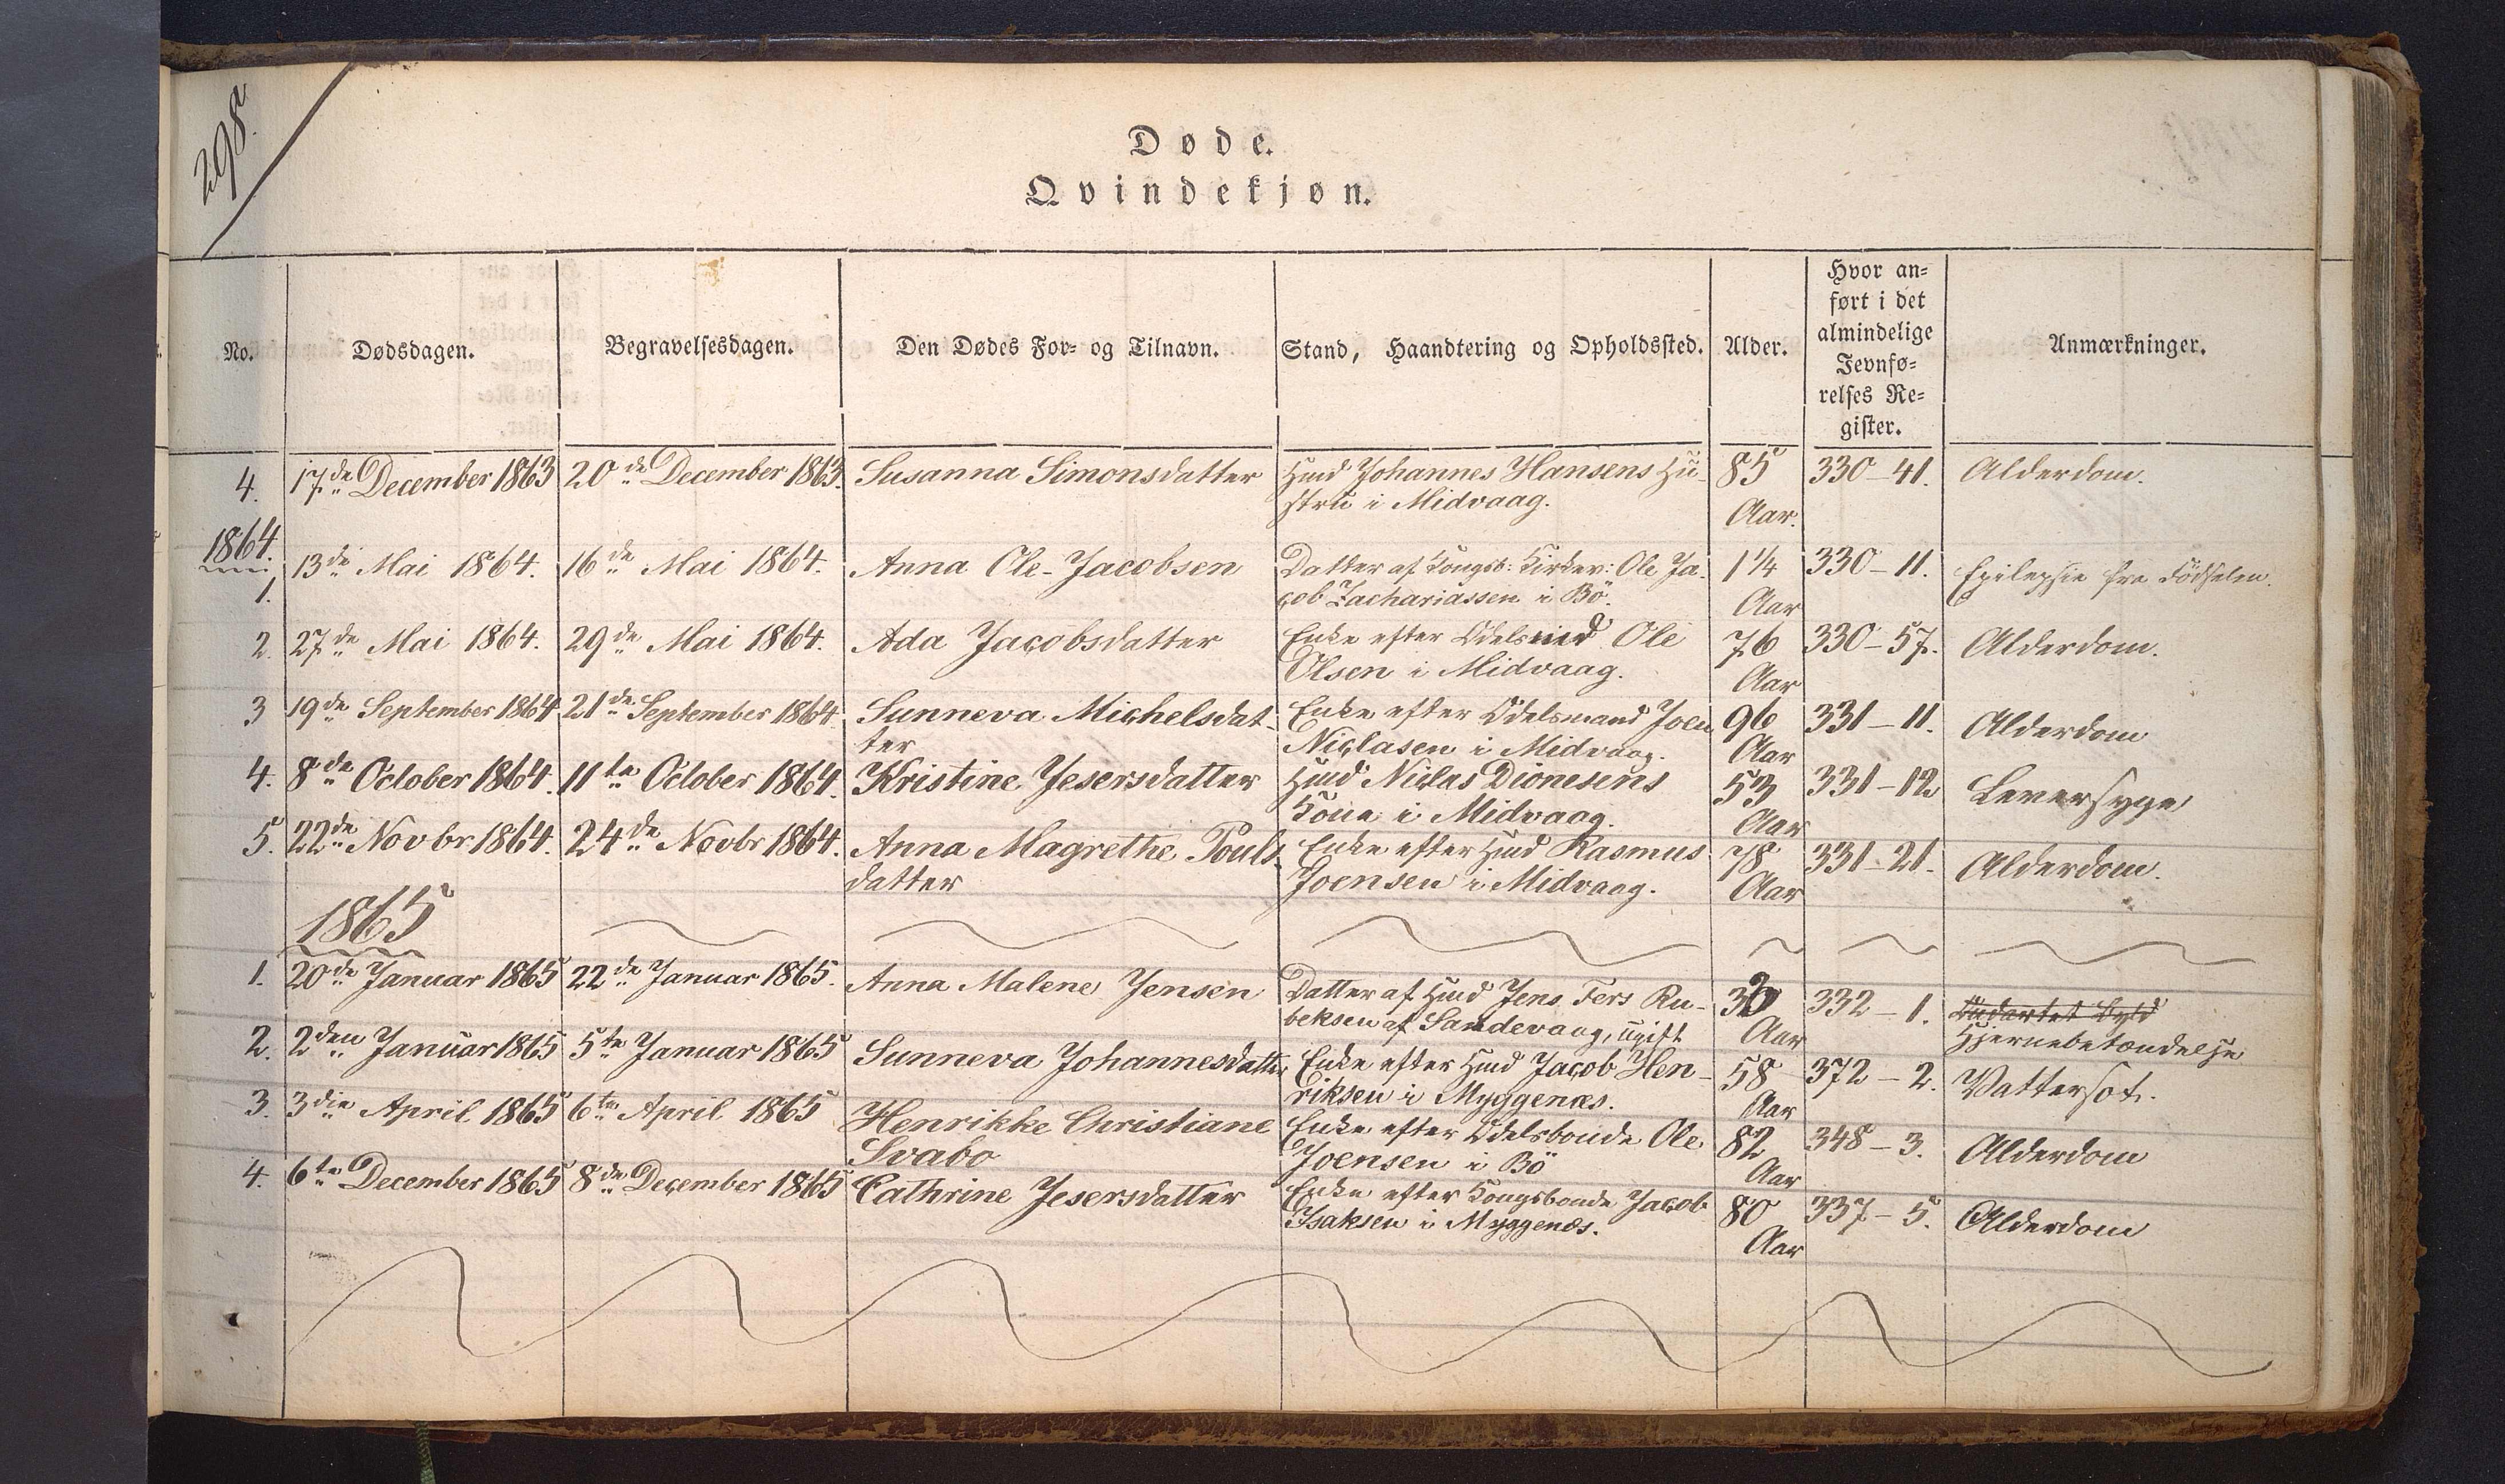 298.
Døde.
Qvindekjøn.
No. Dødsdagen. Begravelsesdagen. Den Dødes For- og Tilnavn. Stand, Haandtering og Opholdssted. Alder. Hvor an=
ført i det
almindelige
Jevnfø=
relses Re=
gister. Anmærkninger.
4. 17de December 1863 20de December 1863. Susanna Simonsdatter Huusmd Johannes Hansens Hu-
stru i Midvaag. 85
Aar. 330-41. Alderdom.
1864.
1. 13de Mai 1864. 16de Mai 1864. Anna Ole-Jacobsen Datter af Kongsb: Kirkev: Ole Ja-
cob Zachariassen i Bö. 1¼
Aar 330-11. Epilepsie fra Födselen.
2. 27de Mai 1864. 29de Mai 1864. Ada Jacobsdatter Enke efter Odelsmd Ole
Olsen i Midvaag. 76
Aar 330-57. Alderdom.
3 19de September 1864 21de September 1864. Sunneva Michelsdat-
ter Enke efter Odelsmand Joen
Niclasen i Midvaag. 96
Aar 331-11. Alderdom
4. 8de October 1864. 11te October 1864. Kristine Jesersdatter Hmd Niclas Dionesens
Kone i Midvaag. 53
Aar 331-12 Leversyge
5. 22de Novbr 1864. 24de Novbr 1864. Anna Magrethe Pouls-
datter Enke efter Hmd Rasmus
Joensen i Midvaag. 78
Aar 331-21. Alderdom.
1865
1. 20de Januar 1865 22de Januar 1865. Anna Malene Jensen Datter af Hmd Jens Fers Ru-
beksen af Sandevaag, ugift 36
Aar 332-1. Hjernebetændelse
2. 2den Januar 1865 5te Januar 1865 Sunneva Johannesdatter Enke efter Hmd Jacob Hen-
riksen i Myggenæs. 58
Aar 372-2. Vattersot.
3. 3die April 1865 6te April 1865 Henrikke Christiane
Svabo Enke efter Odelsbonde Ole
Joensen i Bö 82
Aar 348-3. Alderdom
4. 6te December 1865 8de December 1865 Cathrine Jesersdatter Enke efter Kongsbonde Jacob
Isaksen i Myggenæs. 80
Aar 337-5. Alderdom